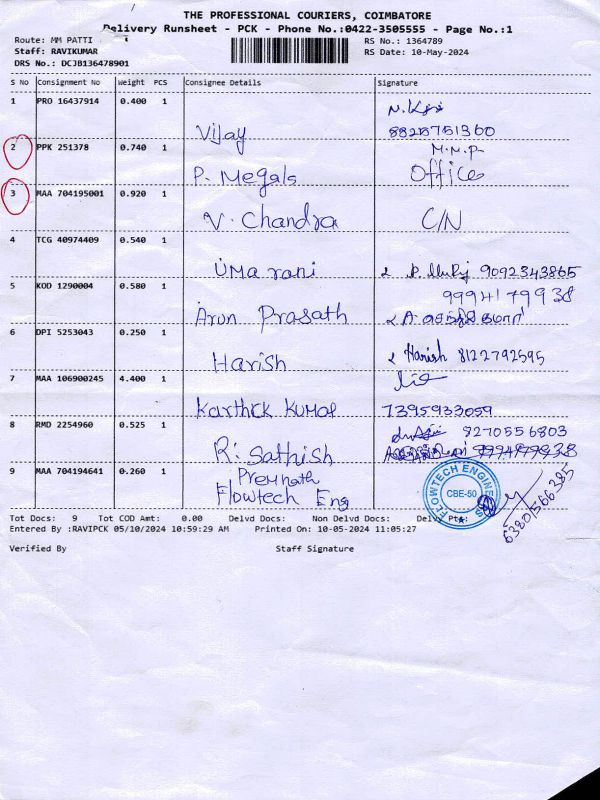 THE PROFESSIONAL COURIERS, COIMBATORE
Delivery Runsheet - PCK - Phone No.:0422-3505555 - Page No.:1
Route: MM PATTI
Staff: RAVIKUMAR
DRS No.: DCJB136478901
RS No.: 1364789
RS Date: 10-May-2024
S No Consignment No Weight PCS Consignee Details Signature
1 PRO 16437914 0.400 1
Vijay 8825751360
2 PPK 251378 0.740 1 M.M.P
P. Megals Office
3 MAA 704195001 0.920 1
V. Chandra C/N
4 TCG 40974409 0.540 1
Uma rani 9092343865
5 KOD 1290004 0.580 1 9994179938
Arun Prasath
6 DPI 5253043 0.250 1
Harish Harish 8122792595
7 MAA 106900245 4.400 1
Karthick Kumar 7395933059
8 RMD 2254960 0.525 1 8270556803
R. Sathish
9 MAA 704194641 0.260 1 Premnath
Flowtech Eng
FLOWTECH ENGINEERS
CBE-50
6380566385
Tot Docs: 9 Tot COD Amt: 0.00 Delvd Docs: Non Delvd Docs: Delvy Pt:
Entered By :RAVIPCK 05/10/2024 10:59:29 AM Printed On: 10-05-2024 11:05:27
Verified By Staff Signature